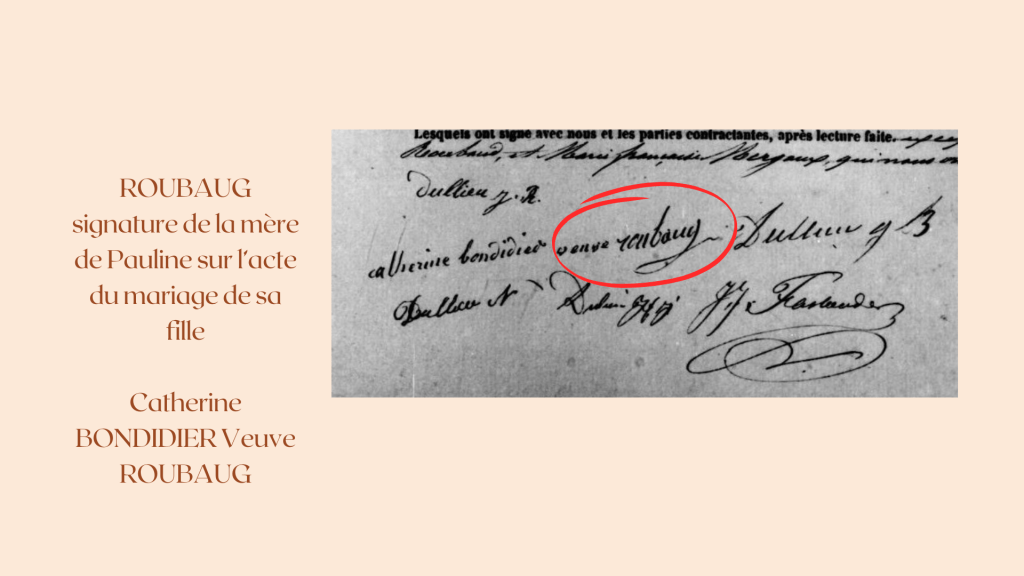 ROUBAUG
signature de la mère
de Pauline sur l'acte
du mariage de sa
fille
Catherine
BONDIDIER Veuve
ROUBAUG
Lesquels ont signé avec nous et les parties contractantes, après lecture faite.
Roubaud, et Marie françoise Bergaux, qui nous
Dullieu J. R.
catherine bondidier veuve roubaug Dullieu J B
Dullieu N